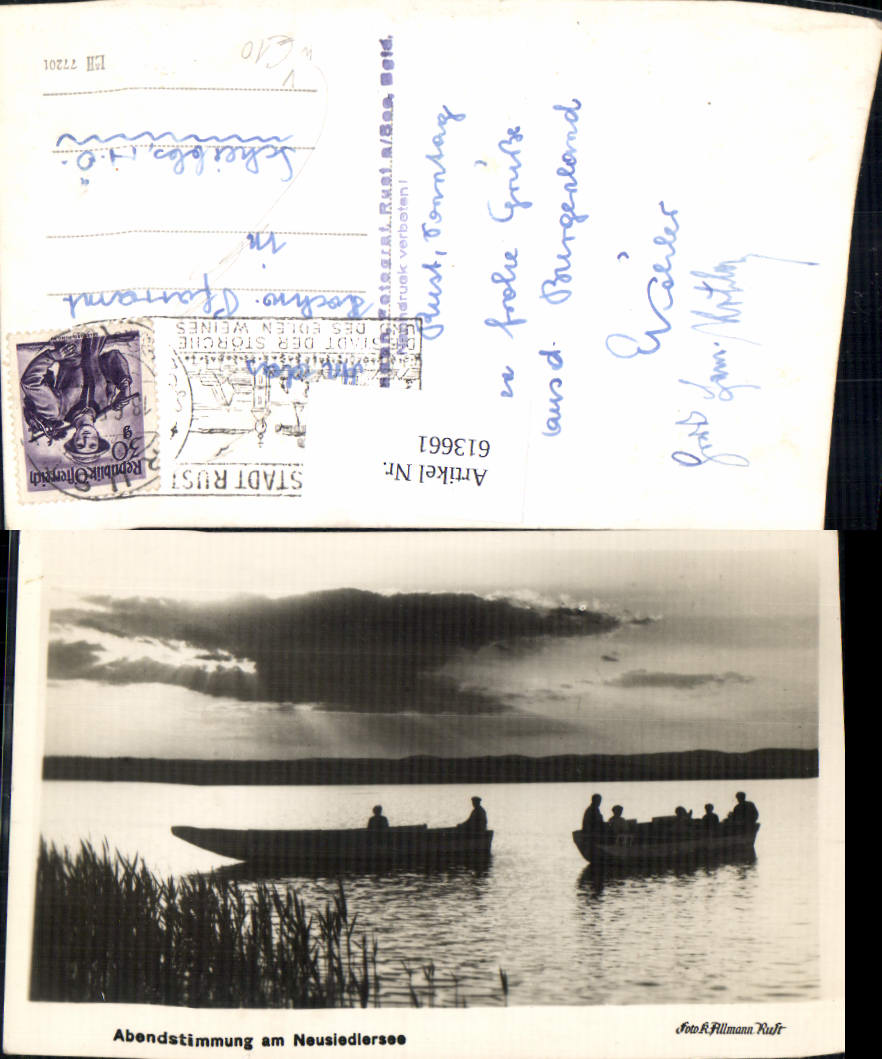 LH 77201
An das
Hochw. Pfarramt
in
Scheibbs, N.Ö.
Fotograf, Rust a/See, Bgld.
Nachdruck verboten!
Rust, Sonntag
frohe Grüße
aus d. Burgenland
STADT RUST
DIE STADT DER STÖRCHE
UND DES EDLEN WEINES
Republik Österreich
30 g
Artikel Nr.
613661
Abendstimmung am Neusiedlersee
Foto R. Allmann Rust